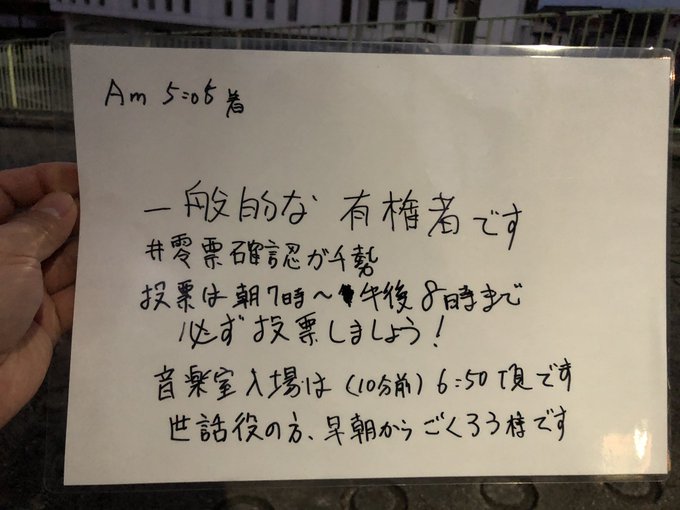 Am 5:05 着
一般的な 有権者です
#零票確認ガチ勢
投票は朝7時～午後8時まで
必ず投票しましょう!
音楽室入場は(10分前)6:50頃です
世話役の方、早朝からごくろう様です